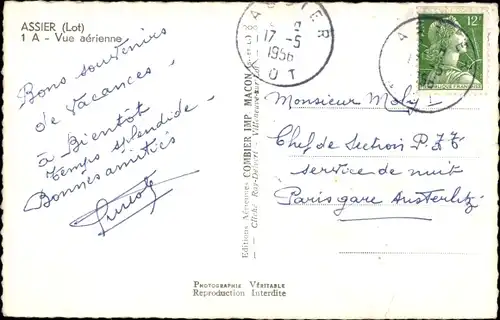 ASSIER (Lot)
1 A - Vue aérienne
Bons souvenirs
de vacances.
à Bientôt
Temps splendide
Bonnes amitiés
ASSIER
17-5
1956
LOT
12F
Editions Aériennes COMBIER IMP. MACON
Cliché Ray-Delvert - Villeneuve-sur-Lot
Monsieur
Chef de Section P.T.T
service de nuit
Paris gare Austerlitz
PHOTOGRAPHIE VÉRITABLE
Reproduction Interdite